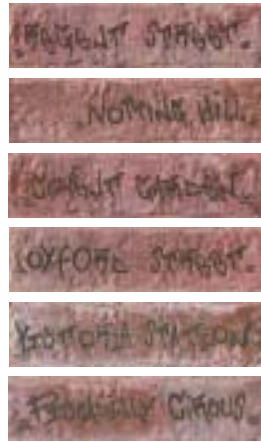 REGENT STREET.
NOTTING HILL.
COVENT GARDEN.
OXFORD STREET.
VICTORIA STATION.
PICCADILLY CIRCUS.